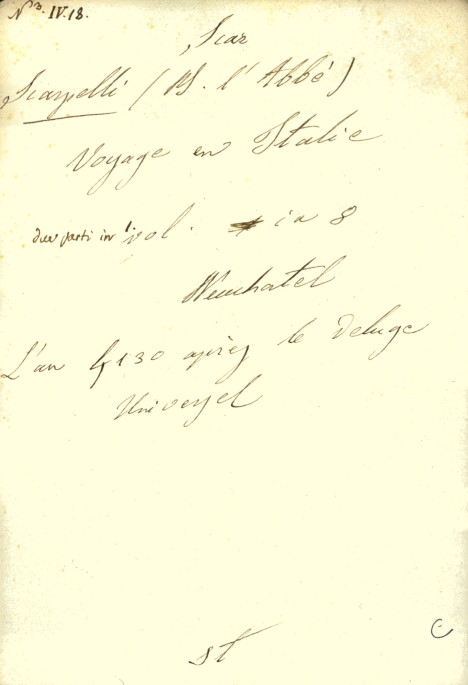 N 3. IV. 18.
Scar
Scarpelli ( M. l'Abbé)
Voyage en Italie
due parti in 1 vol. in 8
Neuchatel
L'an 4130 après le Deluge
Universel
st
C